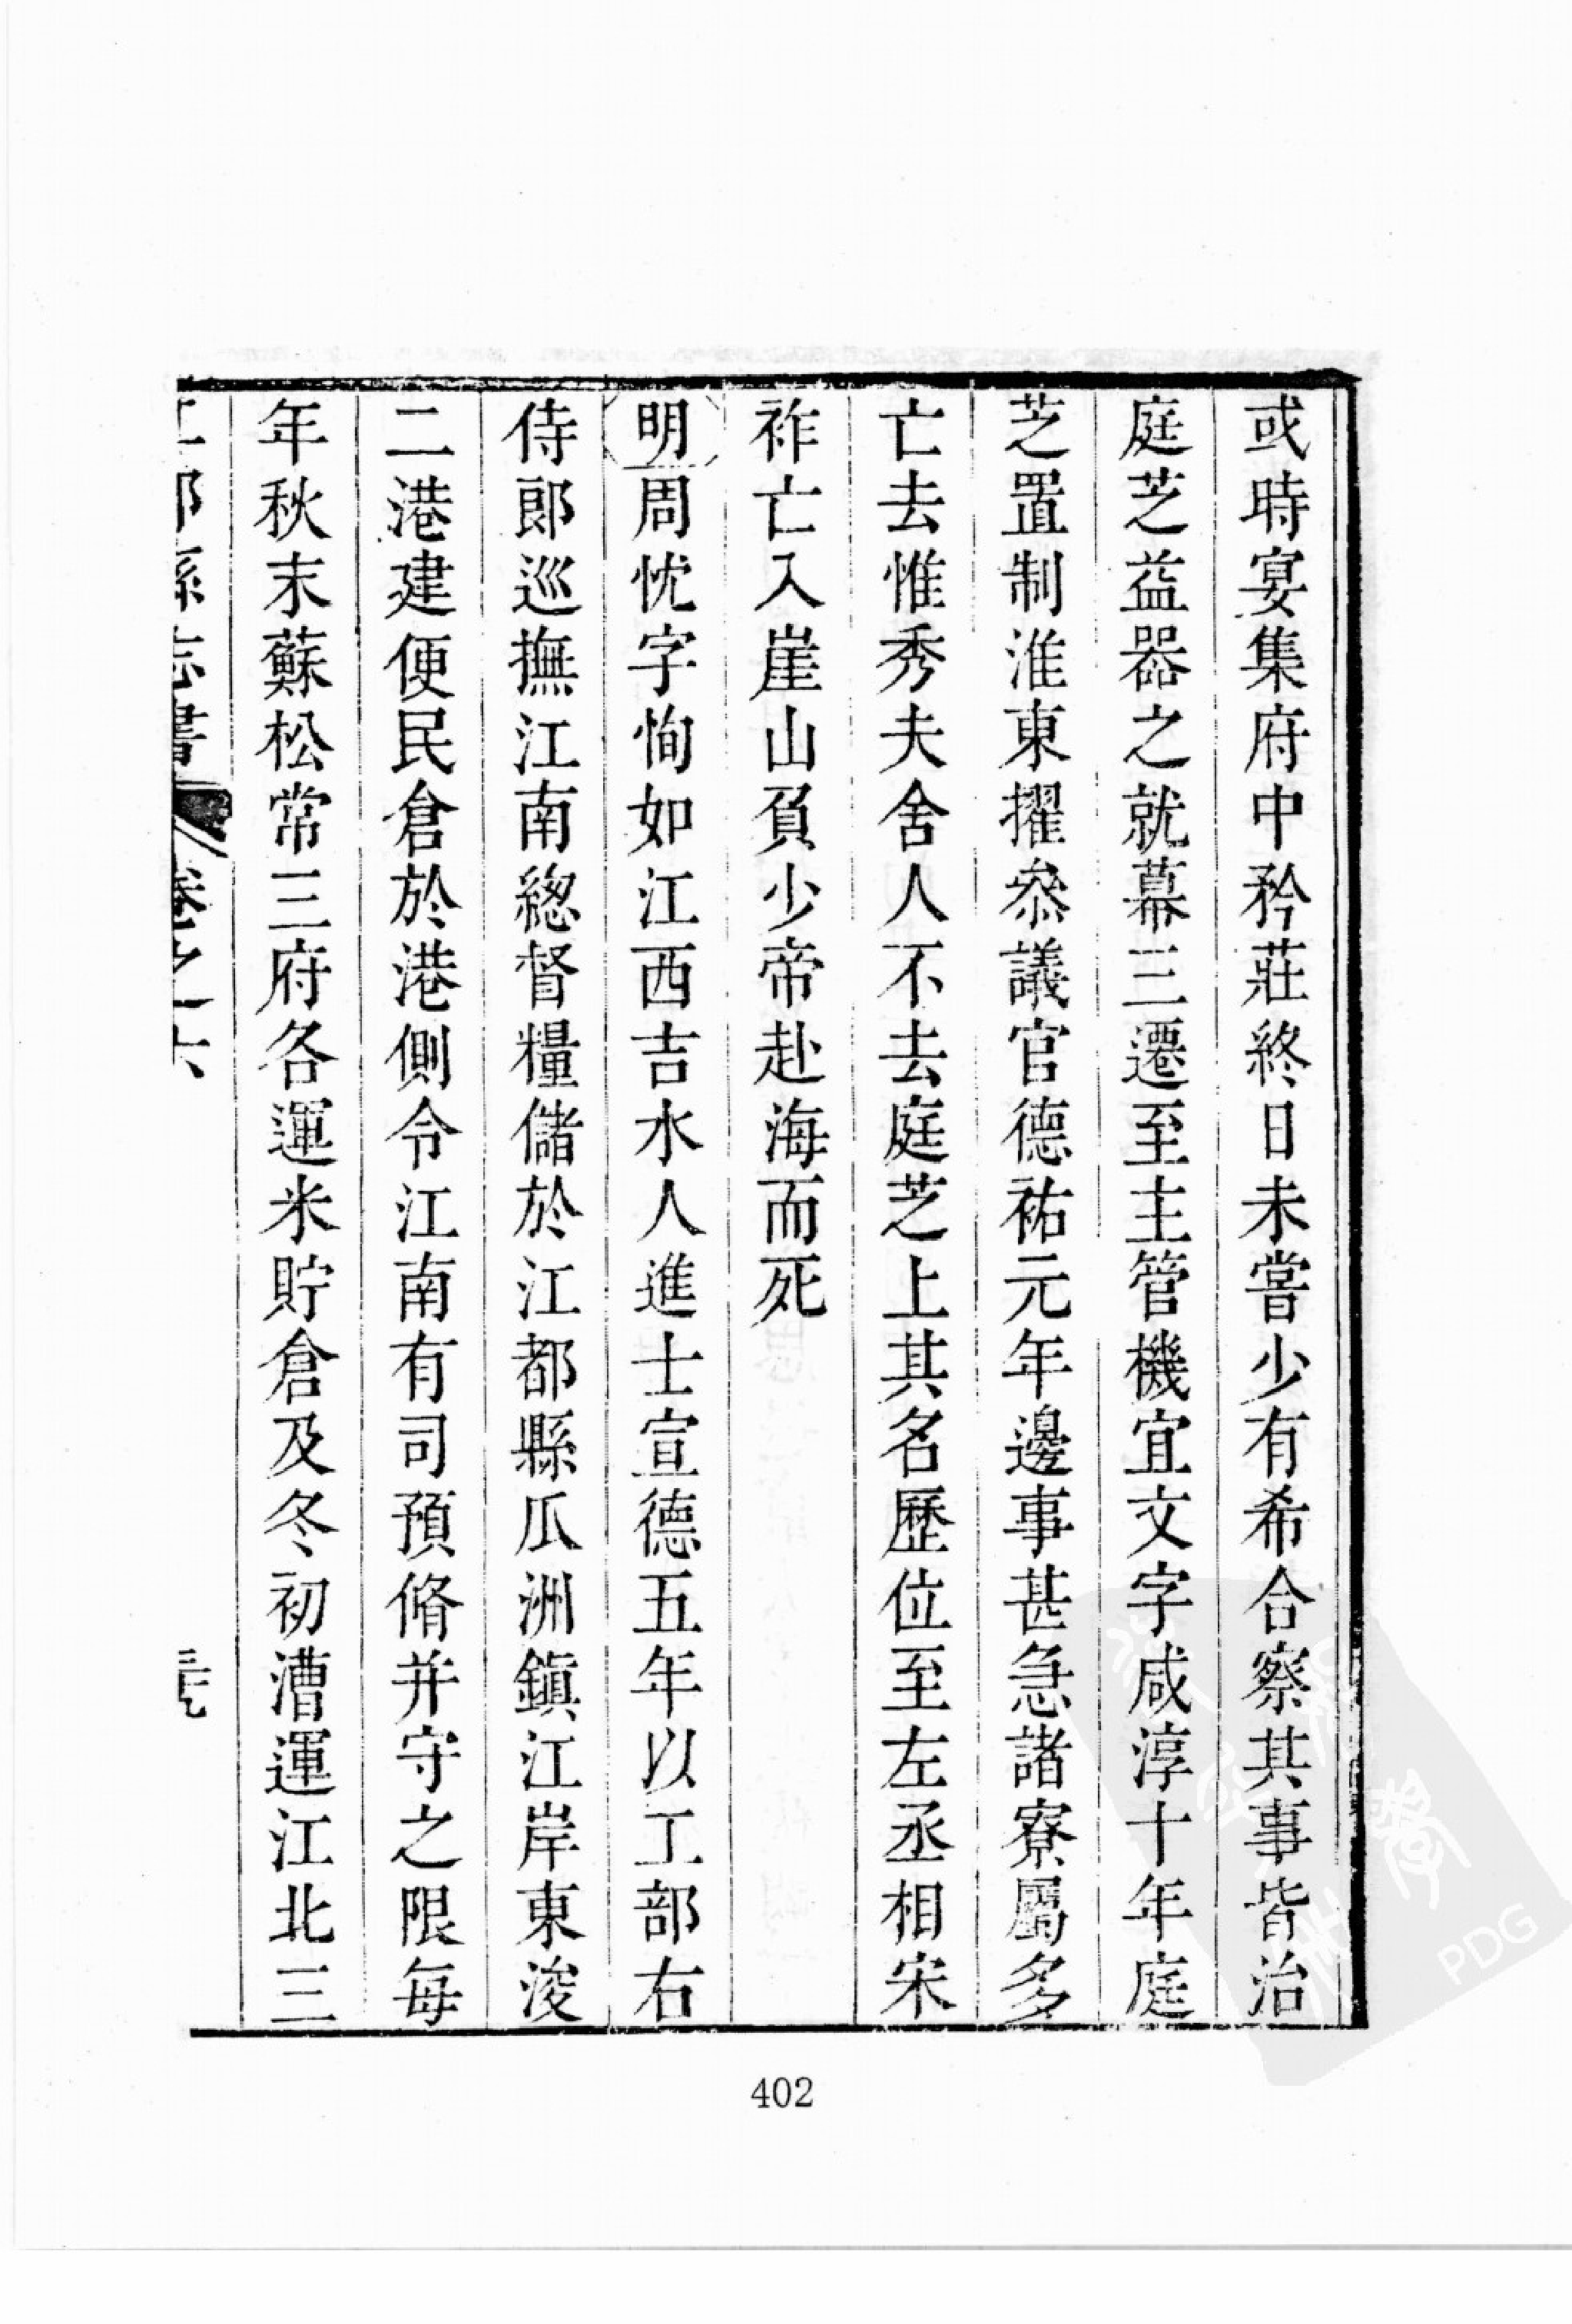 或時宴集府中矜莊終日未嘗少有希合察其事皆治
庭芝益器之就幕三遷至主管機宜文字咸淳十年庭
芝置制淮東擢叅議官德祐元年邊事甚急諸寮屬多
亡去惟秀夫舍人不去庭芝上其名歷位至左丞相宋
祚亡入崖山負少帝赴海而死
明周忱字恂如江西吉水人進士宣德五年以工部右
侍郎巡撫江南總督糧儲於江都縣瓜洲鎮江岸東浚
二港建便民倉於港側令江南有司預脩并守之限每
年秋末蘇松常三府各運米貯倉及冬初漕運江北三
縣志書
卷之六
402
PDG